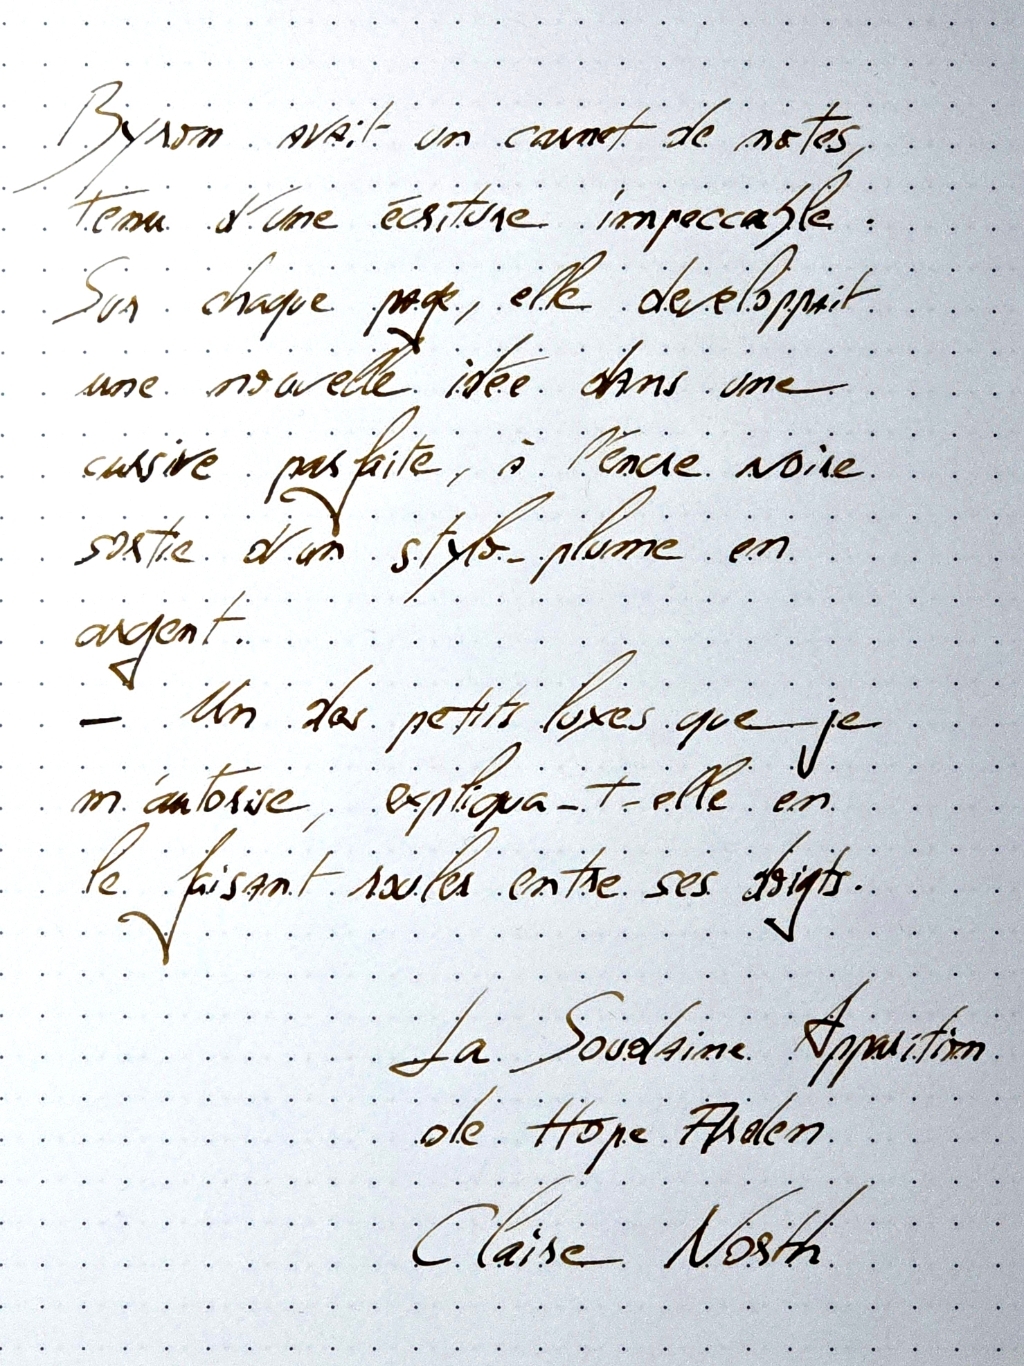 Byron avait un carnet de notes,
tenu d'une écriture impeccable.
Sur chaque page, elle developpait
une nouvelle idée dans une
cursive parfaite, à l'encre noire
sortie d'un stylo-plume en
argent.
– Un des petits luxes que je
m'autorise, expliqua-t-elle en
le faisant rouler entre ses doigts.
La Soudaine Apparition
de Hope Arden
Claire North